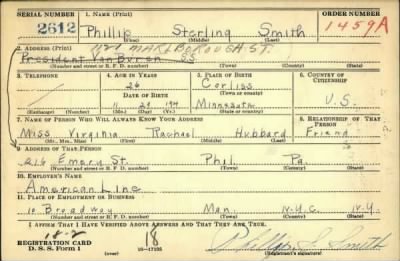 SERIAL NUMBER 1. NAME (Print) ORDER NUMBER
2612 Phillip Sterling Smith 1459A
(First) (Middle) (Last)
1121 MARLBOROUGH ST.
2. ADDRESS (Print)
President Van Buren SS
(Number and street or R. F. D. number) (Town) (County) (State)
3. TELEPHONE 4. AGE IN YEARS 5. PLACE OF BIRTH 6. COUNTRY OF CITIZENSHIP
26 Corliss
DATE OF BIRTH (Town or county)
11 29 Minnesota U.S.
(Exchange) (Number) (Mo.) (Day) (Yr.) (State or country)
7. NAME OF PERSON WHO WILL ALWAYS KNOW YOUR ADDRESS 8. RELATIONSHIP OF THAT PERSON
Miss Virginia Rachael Hubbard Friend
(Mr., Mrs., Miss) (First) (Middle) (Last)
9. ADDRESS OF THAT PERSON
216 Emery St. Phil. Pa.
(Number and street or R. F. D. number) (Town) (County) (State)
10. EMPLOYER'S NAME
American Line
11. PLACE OF EMPLOYMENT OR BUSINESS
10 Broadway Man. N.Y.C. N.Y.
(Number and street or R. F. D. number) (Town) (County) (State)
I AFFIRM THAT I HAVE VERIFIED ABOVE ANSWERS AND THAT THEY ARE TRUE.
REGISTRATION CARD
D. S. S. Form 1 16—17105 18 Phillip S. Smith